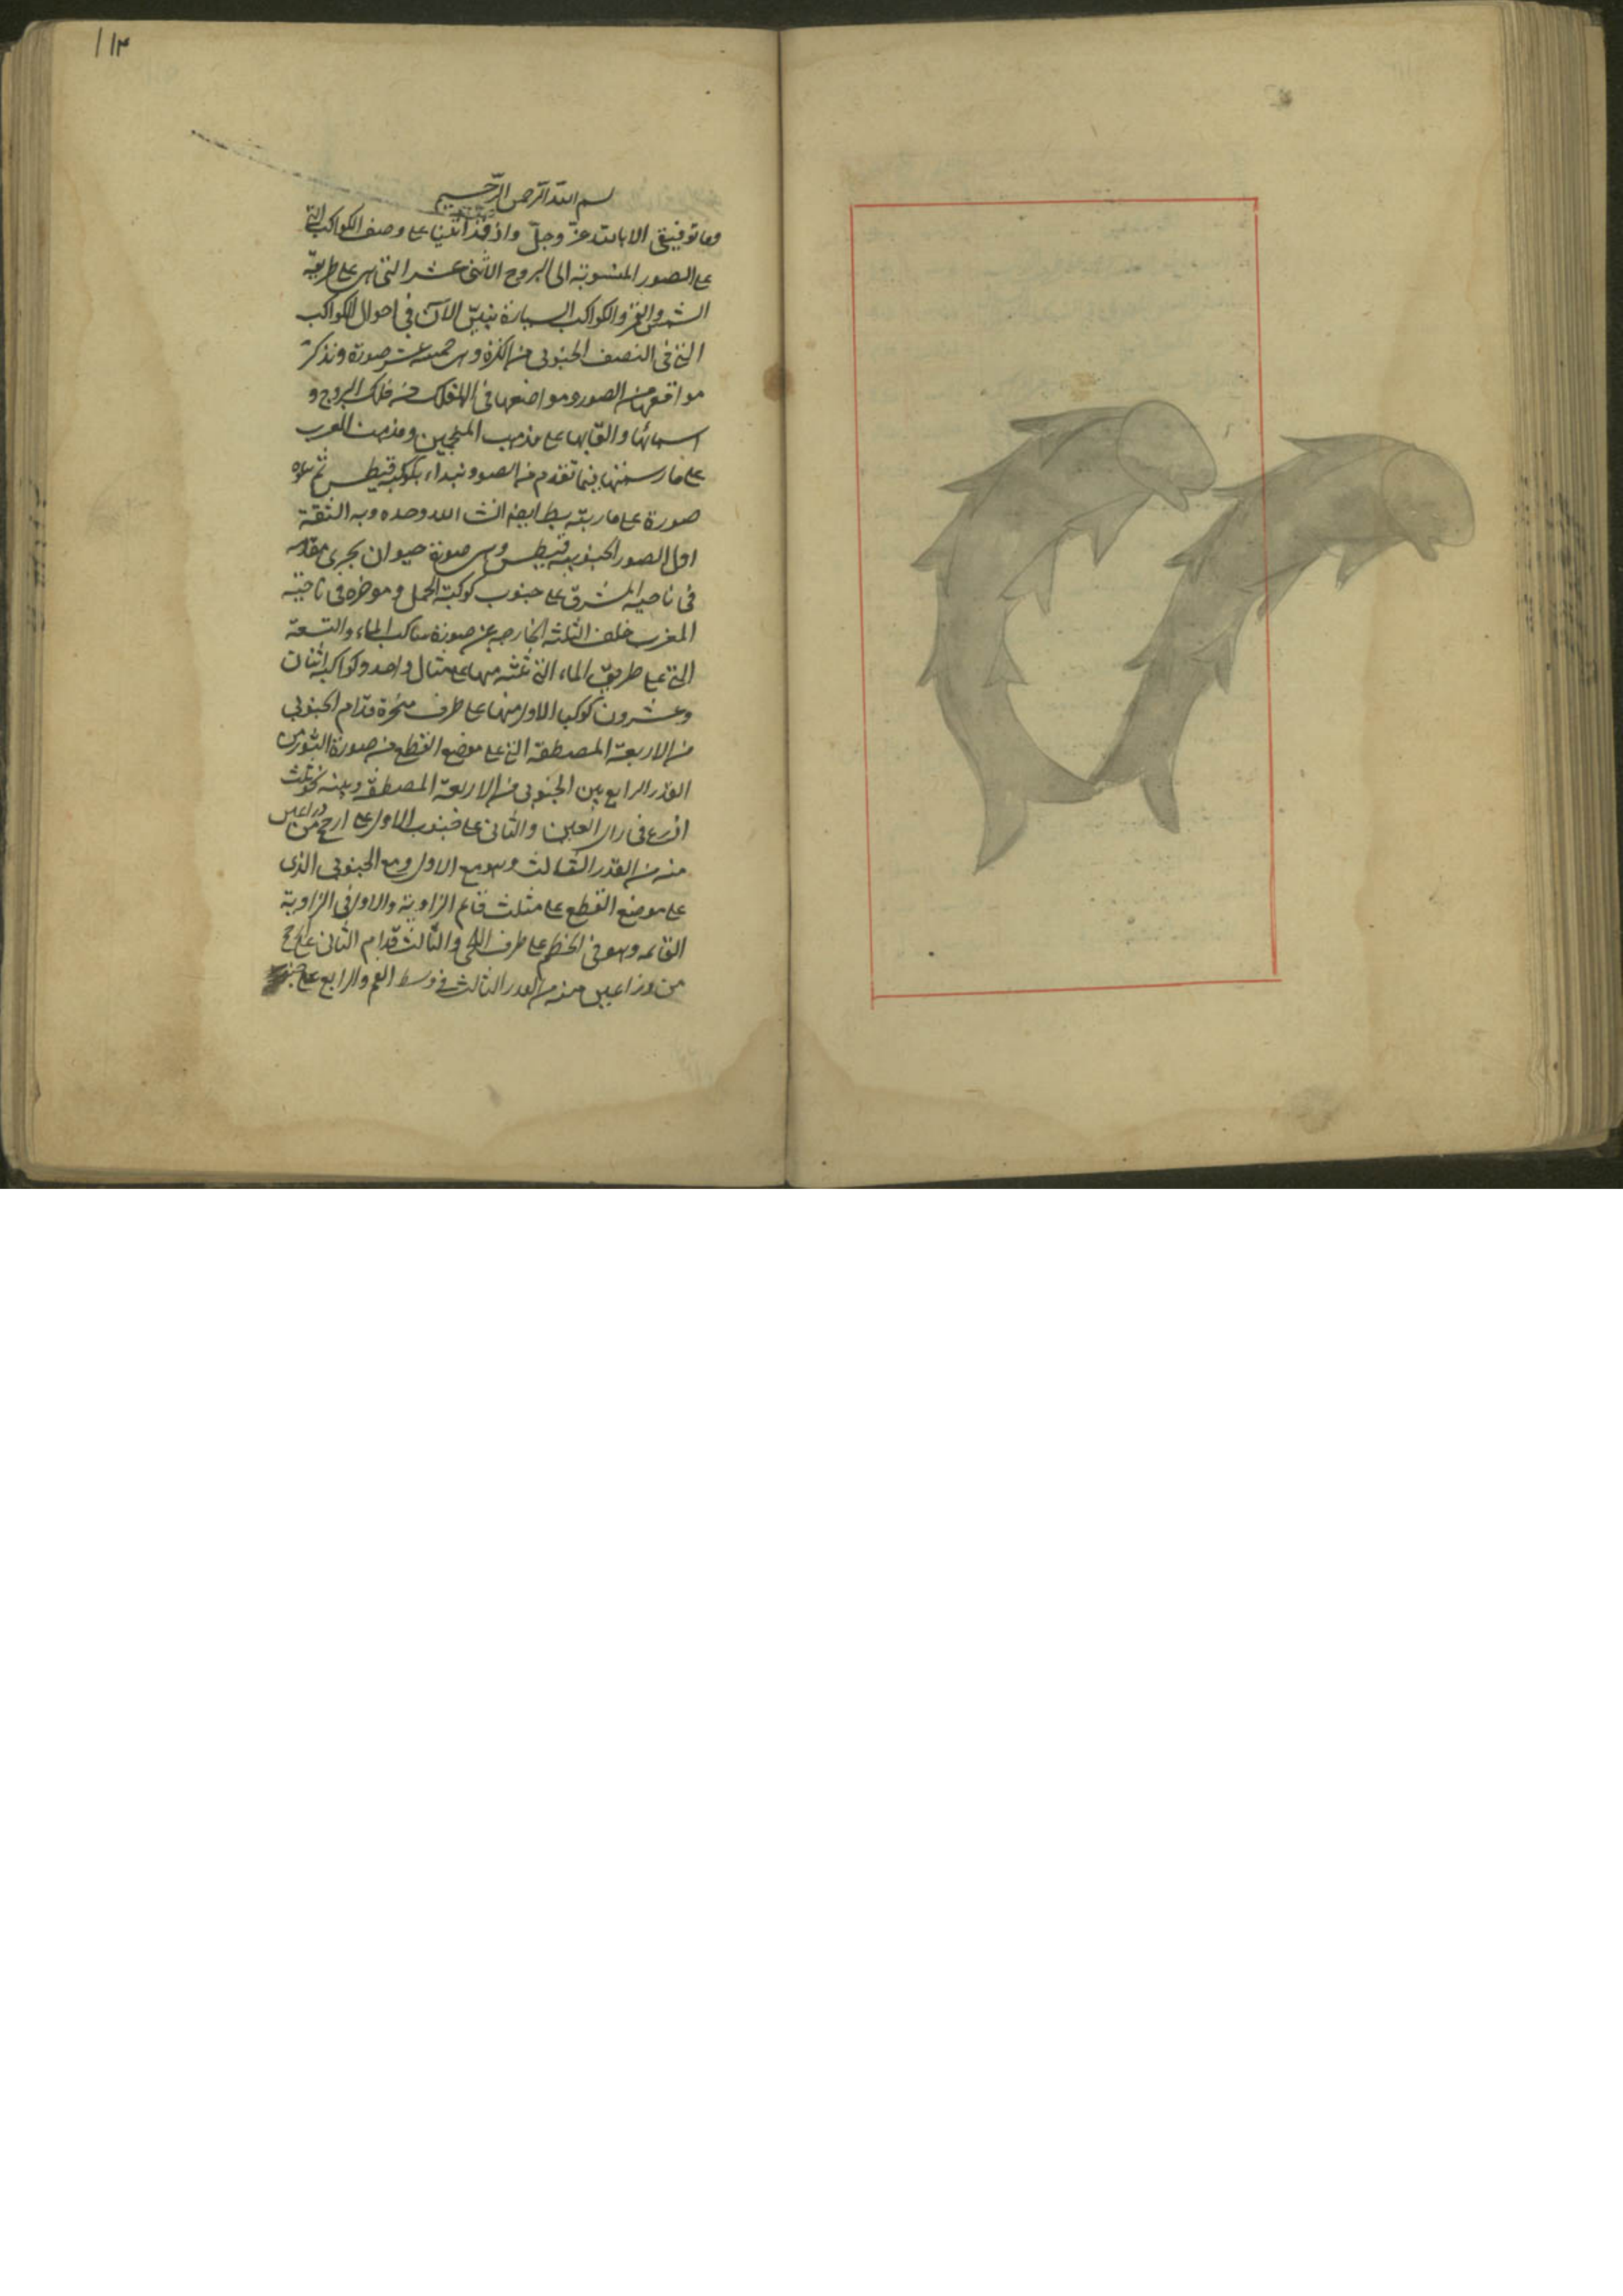 ١١٣
بسم الله الرحمن الرحيم
وما توفيقى الا بالله عز وجل واذ قد اتينا على وصف الكواكب التى
على الصور المنسوبة الى البروج الاثنى عشر التى هى على طريقة
الشمس والقمر والكواكب السيارة نبين الآن فى احوال الكواكب
التى فى النصف الجنوبى من الكرة وهى خمسة عشر صورة ونذكر
مواقعها من الصور ومواضعها فى الفلك من فلك البروج و
اسمائها والقابها على مذهب المنجمين ومذهب العرب
على ما رسمنها فيما تقدم من الصور ونبداء بكوكبة قيطس ثم
صورة على ما رتبه ايضا انشا الله وحده وبه الثقة
اول الصور الجنوبية قيطس وهى صورة حيوان بحرى مقدمه
فى ناحية المشرق على جنوب كوكبة الحمل و موخره فى ناحية
المغرب خلف الثلثة الخارجه عن صورة ساكب الماء والتسعة
التى على طريق الماء التى ثلثة منها على مثال واحد وكواكبه اثنان
وعشرون كوكبا الاول منها على طرف منخره قدام الجنوبى
من الاربعة المصطفة التى على موضع القطع من صورة الثور من
القدر الرابع بين الجنوبى من الاربعة المصطفة وبينه نحو ثلث
اذرع فى راى العين والثانى على جنوب الاول على ارجح من ذراعين
منه من القدر الثالث وهو مع الاول ومع الجنوبى الذى
على موضع القطع على مثلث قائم الزاوية والاول فى الزاوية
القائمه وهو فى الخطم على طرف اللحى والثالث قدام الثانى على ارجح
من ذراعين منه من القدر الثالث فى وسط الفم والرابع على